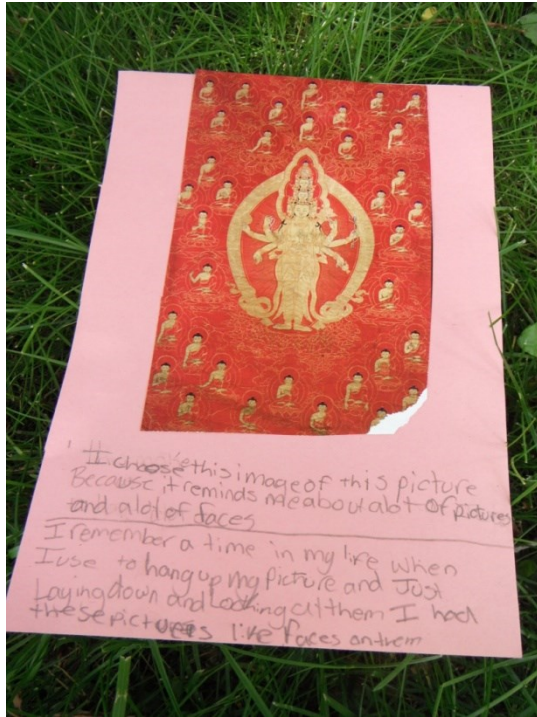 I choose this image of this picture
Because it reminds me about alot of pictures
and alot of faces
I remember a time in my life when
I use to hang up my Picture and Just
Laying down and Looking at them I had
these pictures like faces on them